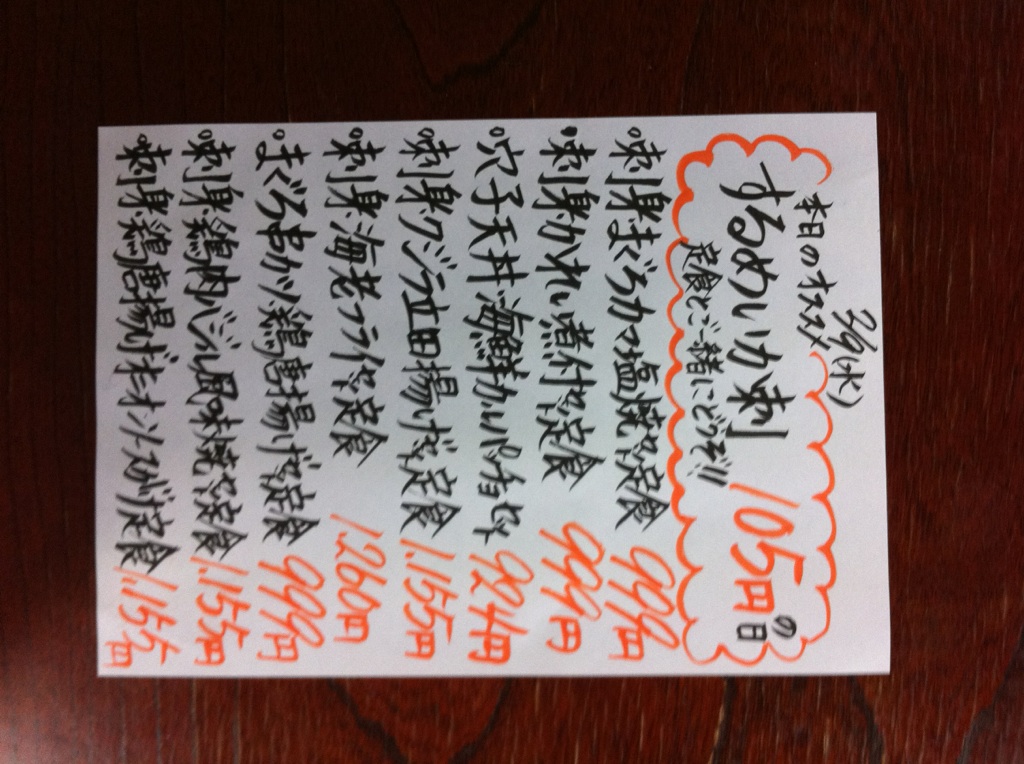 2/9(水)
本日のオススメ
するめいか刺 105円の日
定食とご一緒にどうぞ!!
°刺身まぐろカマ塩焼で定食 999円
°刺身かれい煮付で定食 999円
°穴子天丼海鮮カルパッチョセット 924円
°刺身クジラ立田揚げで定食 1.155円
°刺身海老フライで定食 1.260円
°まぐろ串カツ鶏唐揚げで定食 999円
°刺身鶏肉バジル風味焼で定食 1.155円
°刺身鶏唐揚げオニオンソースがけ定食 1.155円